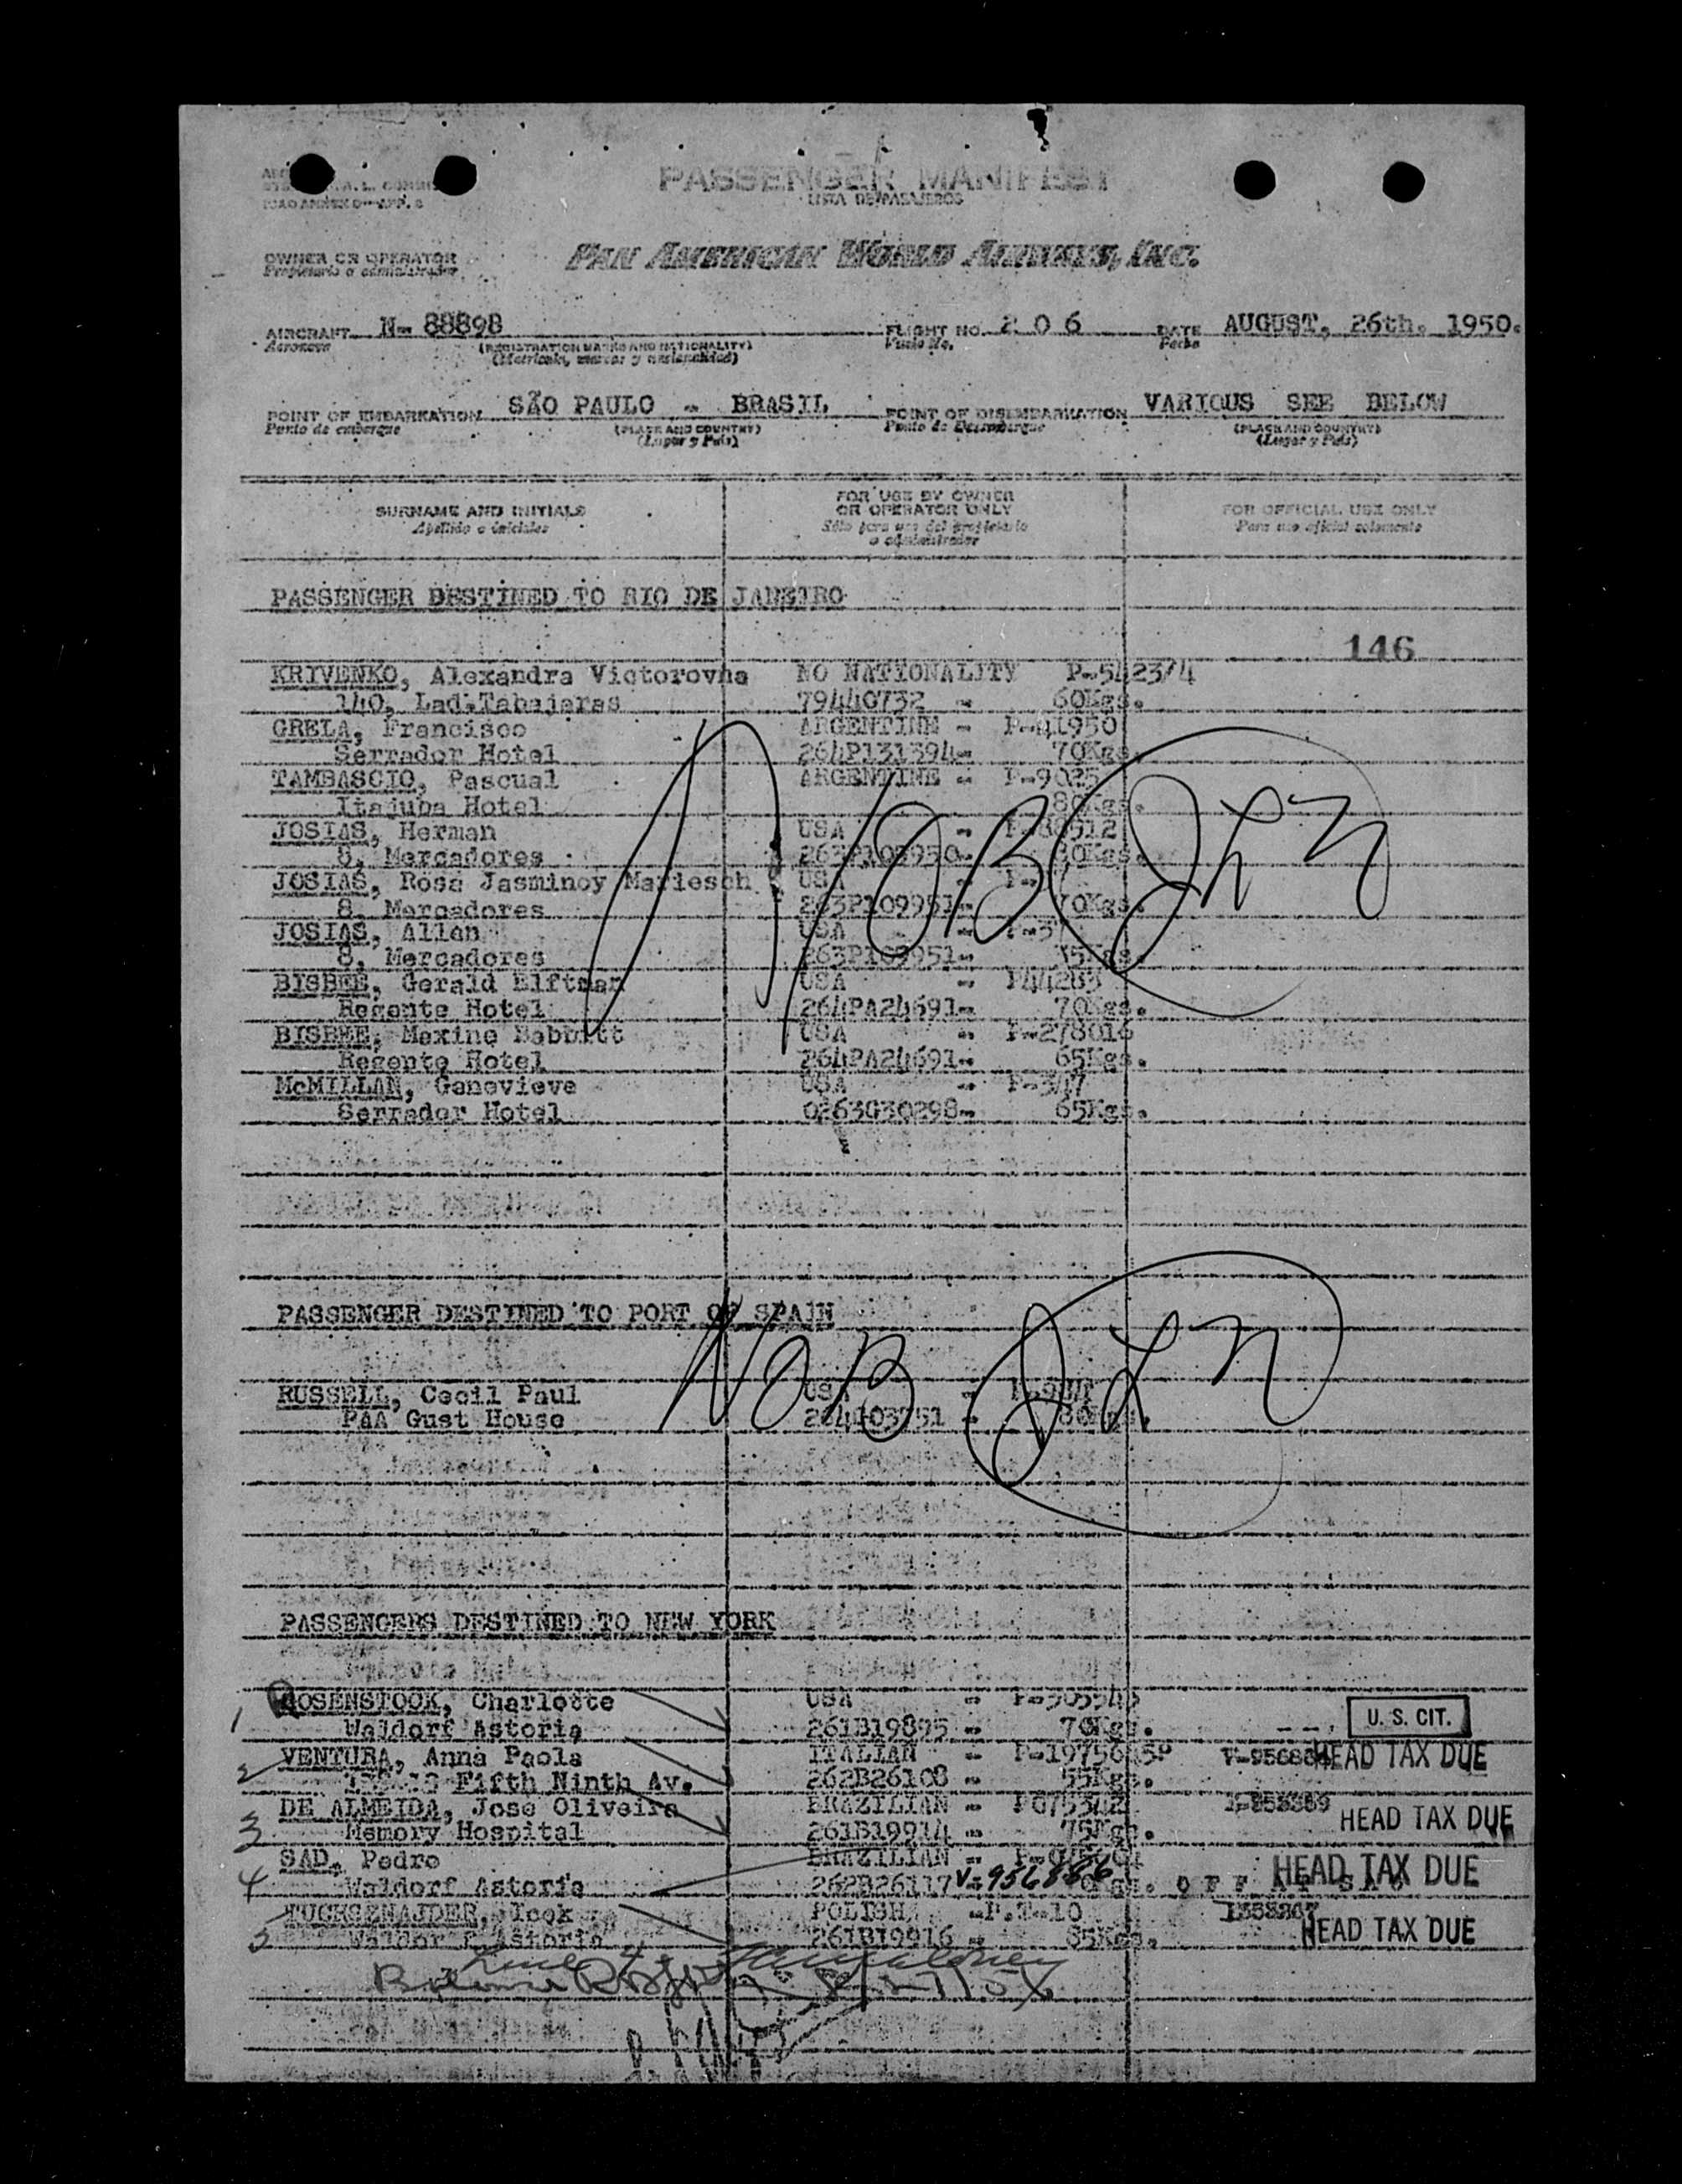 PASSENGER MANIFEST
LISTA DE PASAJEROS
OWNER OR OPERATOR
Propietario o administrador
PAN AMERICAN WORLD AIRWAYS, INC.
AIRCRAFT N- 88898 FLIGHT NO. 2 0 6 DATE AUGUST, 26th. 1950.
Aeronave (REGISTRATION MARKS AND NATIONALITY) Vuelo No. Fecha
(Matrícula, marcas y nacionalidad)
POINT OF EMBARKATION SÃO PAULO - BRASIL POINT OF DISEMBARKATION VARIOUS SEE BELOW
Punto de embarque (PLACE AND COUNTRY) Punto de Desembarque (PLACE AND COUNTRY)
(Lugar y País) (Lugar y País)
SURNAME AND INITIALS FOR USE BY OWNER OR OPERATOR ONLY FOR OFFICIAL USE ONLY
Apellido e iniciales Sólo para uso del propietario o administrador Para uso oficial solamente
PASSENGER DESTINED TO RIO DE JANEIRO
146
KRIVENKO, Alexandra Victorovna NO NATIONALITY P-5423/4
140, Lad.Tabajaras 79440732 - 60Kgs.
GRELA, Francisco ARGENTINE - P-41950
Serrador Hotel 264P131394- 70Kgs.
TAMBASCIO, Pascual ARGENTINE - P-9025
Itajuba Hotel 80Kgs.
JOSIAS, Herman USA -
8, Mercadores 263P109950- Kgs.
JOSIAS, Rosa Jasminoy Mariesch USA -
8, Mercadores 263P109951- 70Kgs.
JOSIAS, Allan USA -
8, Mercadores 263P109951- 35Kgs.
BISBEE, Gerald Elftman USA - P44283
Regente Hotel 264PA24691- 70Kgs.
BISBEE, Maxine Babbitt USA - P-278016
Regente Hotel 264PA24691- 65Kgs.
McMILLAN, Genevieve USA - P-347
Serrador Hotel 0263G30298- 65Kgs.
NOB
PASSENGER DESTINED TO PORT OF SPAIN
NOB
RUSSELL, Cecil Paul USA -
PAA Gust House - 80Kgs.
PASSENGERS DESTINED TO NEW YORK
1 ROSENSTOCK, Charlotte USA -
Waldorf Astoria 261B19895 - 70Kgs. U. S. CIT.
2 VENTURA, Anna Paola ITALIAN - HEAD TAX DUE
Fifth Ninth Av. 262B26108 - 55Kgs.
3 DE ALMEIDA, Jose Oliveira BRAZILIAN - HEAD TAX DUE
Memory Hospital 261B19914 - 75Kgs.
4 SAD, Pedro BRAZILIAN - HEAD TAX DUE
Waldorf Astoria 262B26117 V-956886
5 TUCHSZNAJDER, Icek POLISH -P.T-10 HEAD TAX DUE
Waldorf Astoria 261B19916 - 85Kgs.